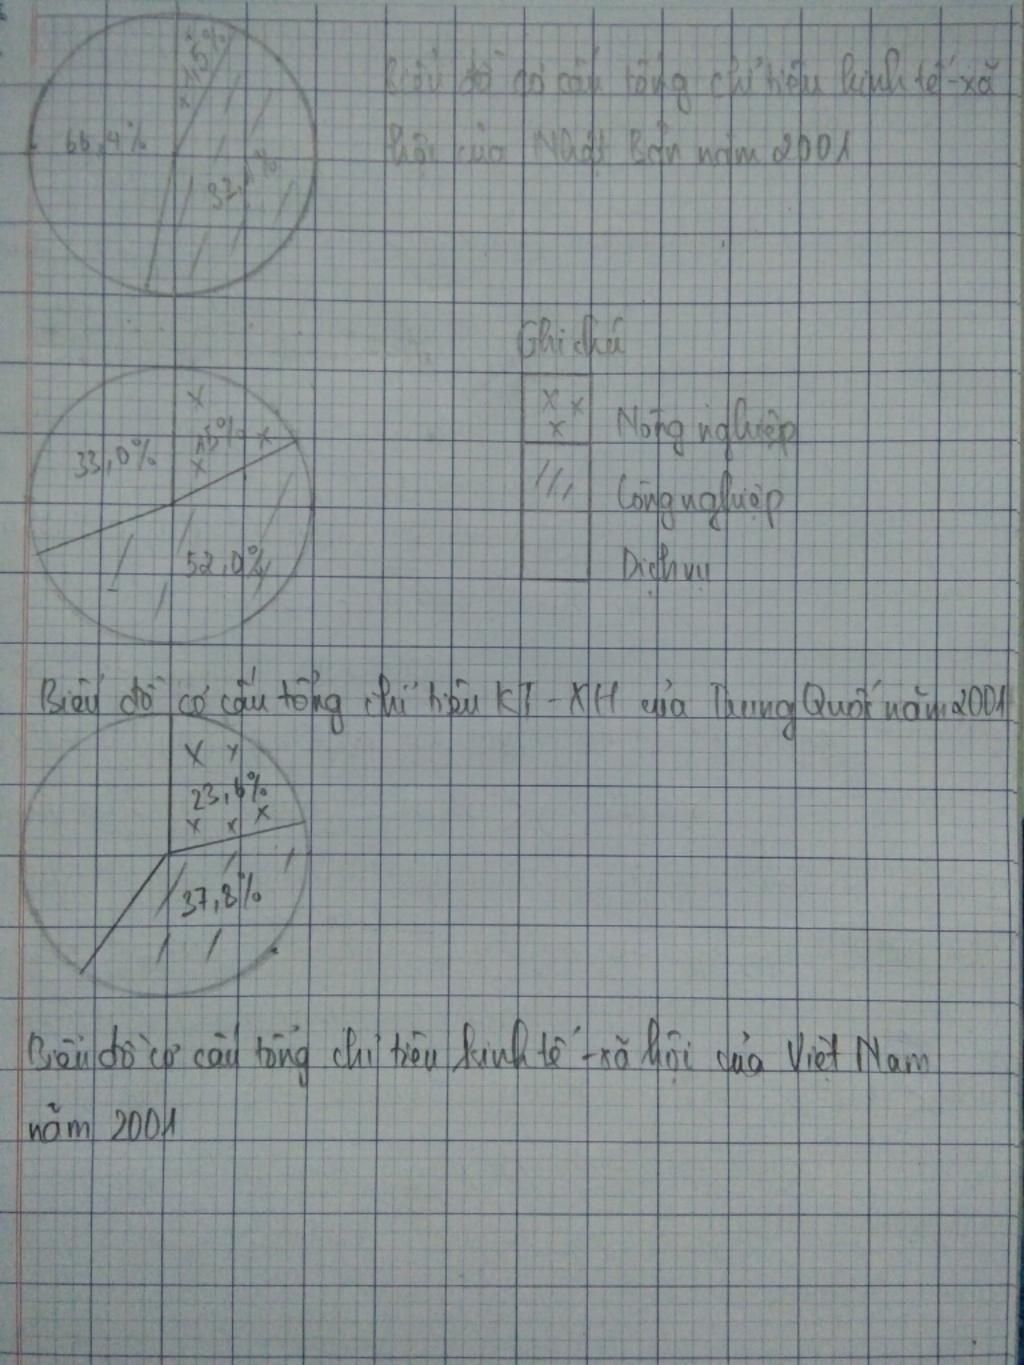 1,5%
Biểu đồ cơ cấu tổng chỉ tiêu kinh tế-xã
66,4%
hội của Nhật Bản năm 2001
32,1%
Ghi chú
x x
x
Nông nghiệp
33,0%
15%
Công nghiệp
52,0%
Dịch vụ
Biểu đồ cơ cấu tổng chỉ tiêu KT-XH của Trung Quốc năm 2001
23,6%
37,8%
Biểu đồ cơ cấu tổng chỉ tiêu kinh tế-xã hội của Việt Nam
năm 2001